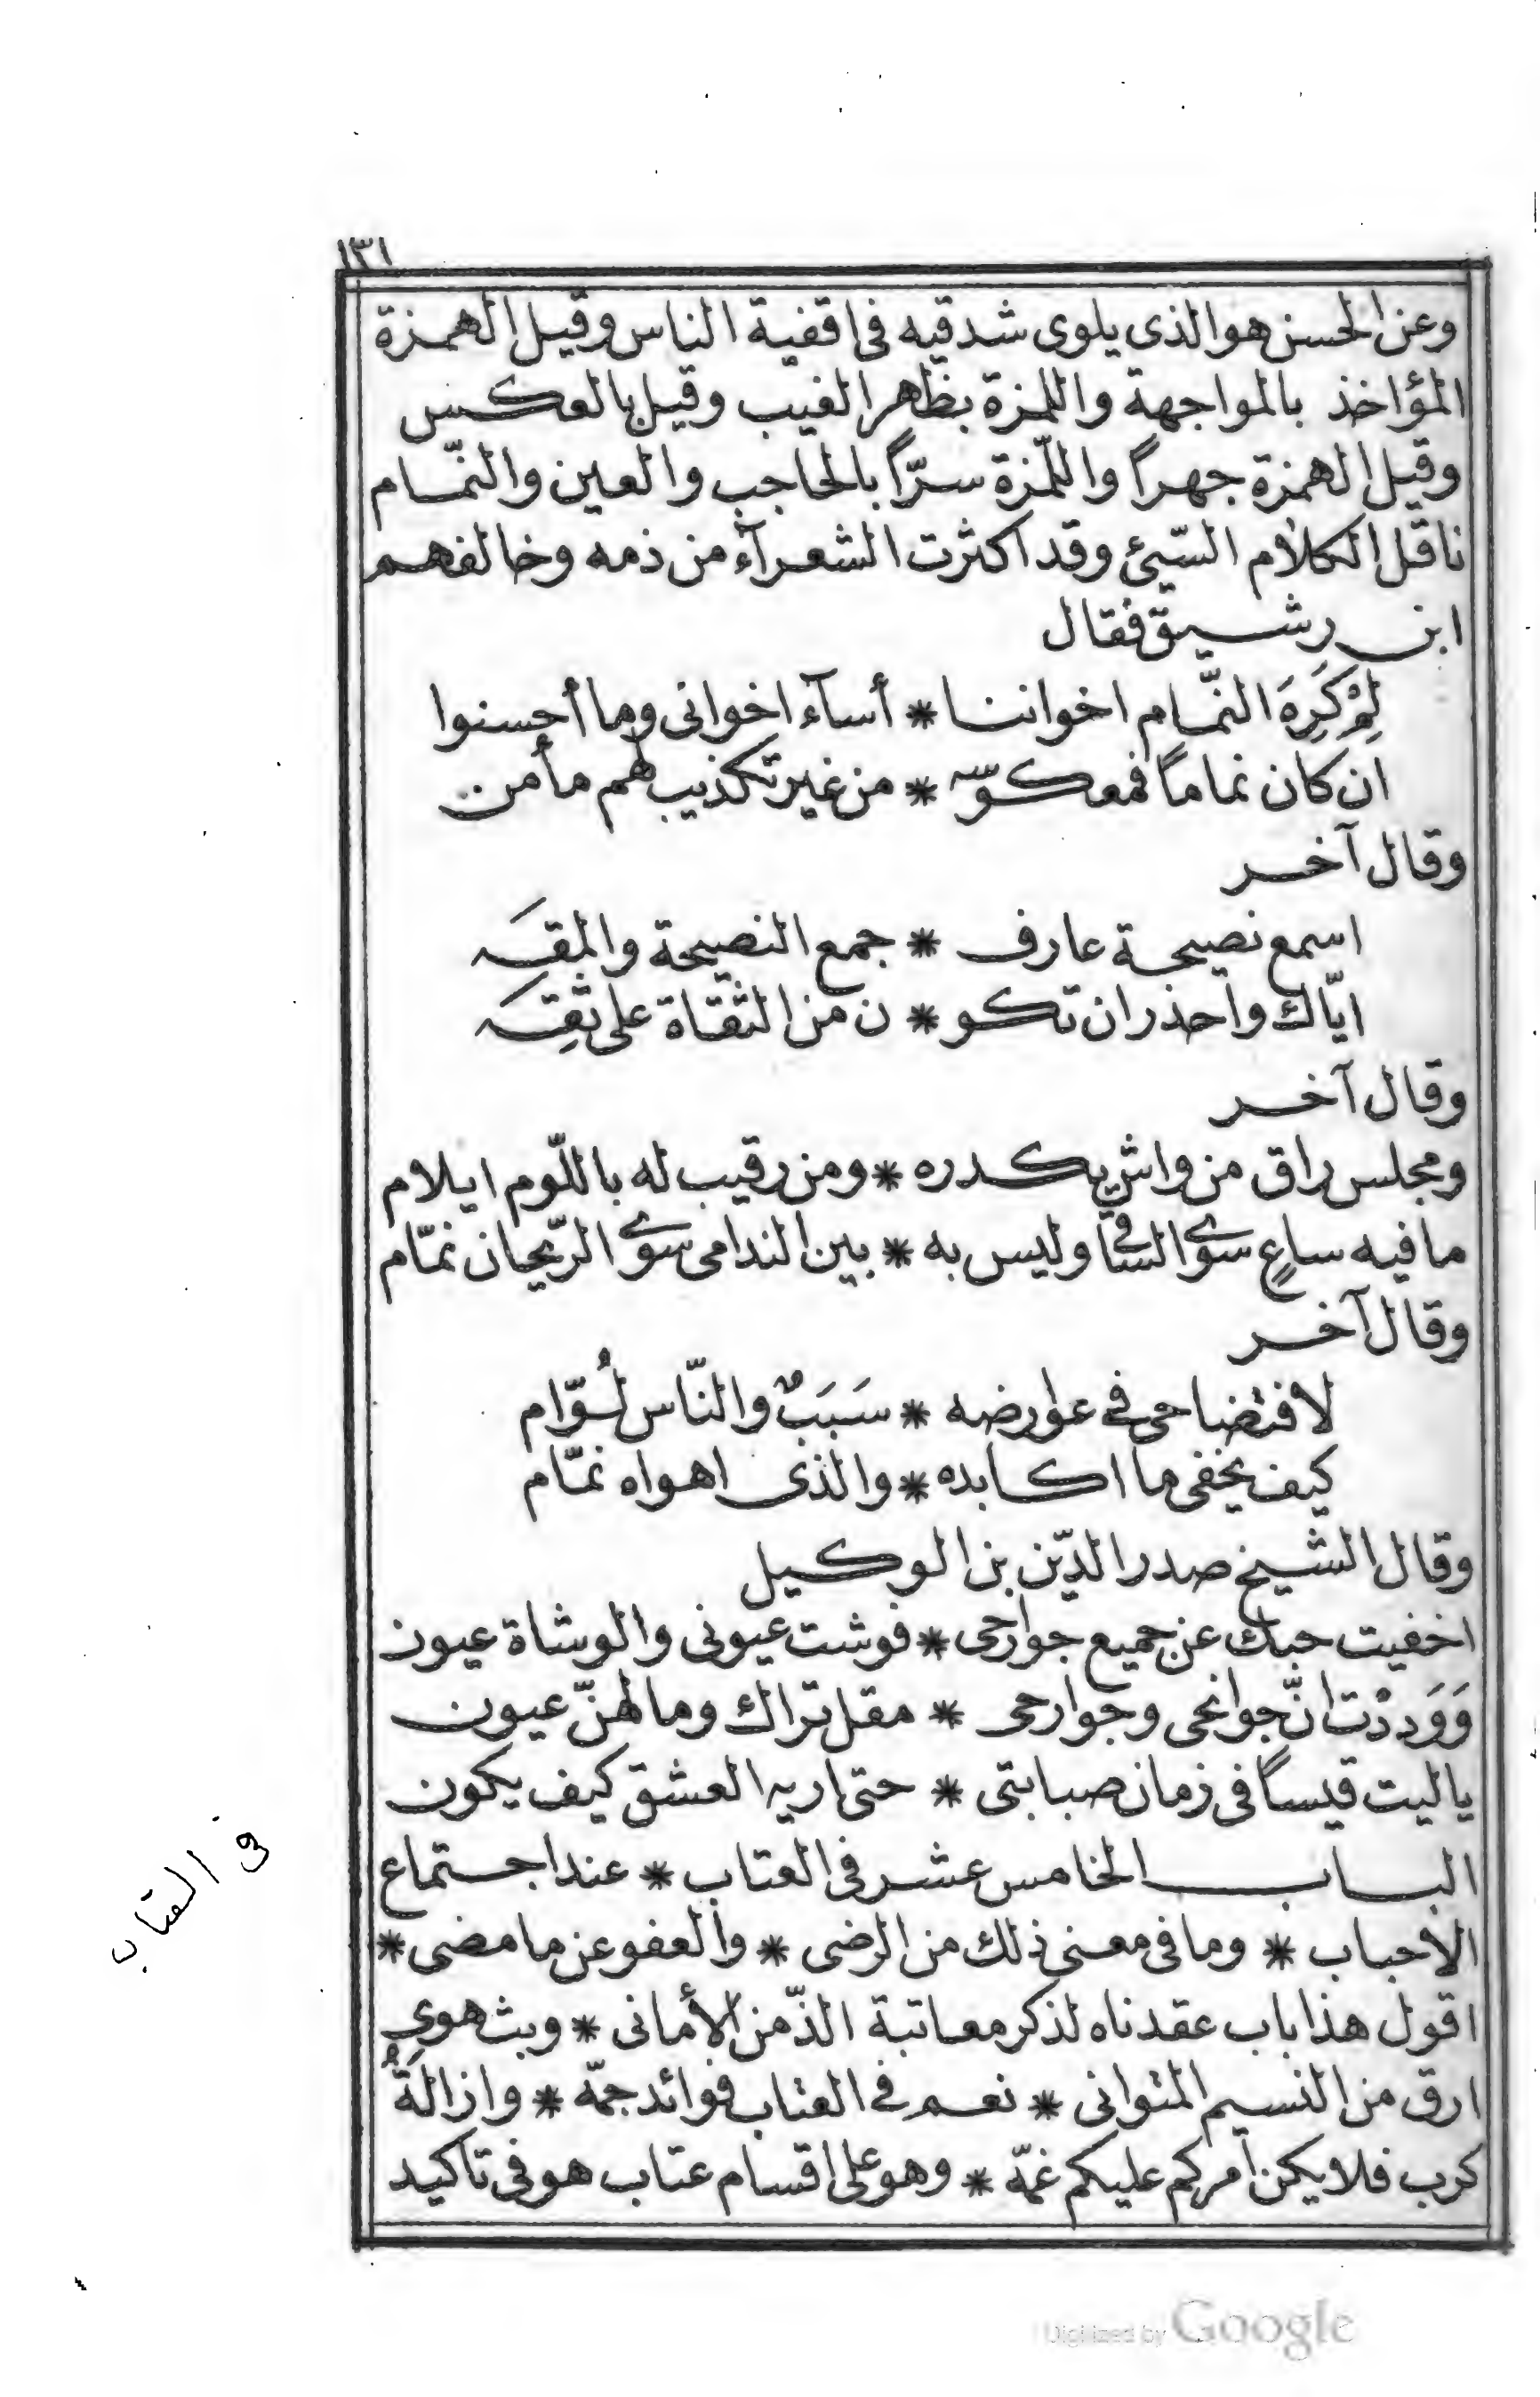 ١٣١
وعن الحسن هو الذى يلوى شدقيه فى اقفية الناس وقيل الهمزة
المؤاخذ بالمواجهة واللمزة بظاهر الغيب وقيل بالعكس
وقيل الهمزة جهراً واللمّزة سرّاً بالحاجب والعين والنمّام
ناقل الكلام السّيئ وقد اكثرت الشعرآء من ذمه وخالفهم
ابن رشيق فقال
لِمْ كَرِهَ النمّام اخواننا * أسآء اخوانى وما أحسنوا
ان كان نماماً فمعكوسه * من غير تكذيب لهم مأمن
وقال آخر
اسمع نصيحة عارف * جمع النصيحة والمقَه
ايّاك واحذر ان تكو * ن من الثقاة على ثِقَه
وقال آخر
ومجلس راق من واشٍ يكدره * ومن رقيب له باللّوم ايلام
ما فيه ساعٍ سوى الساقى وليس به * بين الندامى سوى الرّيحان نمّام
وقال آخر
لافتضاحى فى عوارضه * سَبَبٌ والنّاس لُوّام
كيف يخفى ما اكابده * والذى اهواه نمّام
وقال الشيخ صدر الدّين بن الوكيل
اخفيت حبك عن جميع جوارحى * فوشت عيونى والوشاة عيون
وَوَددْت انّ جوانحى وجوارحى * مقل تراك وما لهنّ عيون
ياليت قيساً فى زمان صبابتى * حتى اريه العشق كيف يكون
الباب الخامس عشر فى العتاب * عند اجتماع
الاحباب * وما فى معنى ذلك من الرضى * والعفو عن ما مضى *
اقول هذا باب عقدناه لذكر معاتبة الذّ من الأمانى * وبث هوى
ارق من النسيم المتوانى * نعم فى العتاب فوائد جمّه * وازالَةُ
كرب فلا يكن امركم عليكم غمّه * وهو على اقسام عتاب هو فى تاكيد
فى العتاب
Digitized by Google